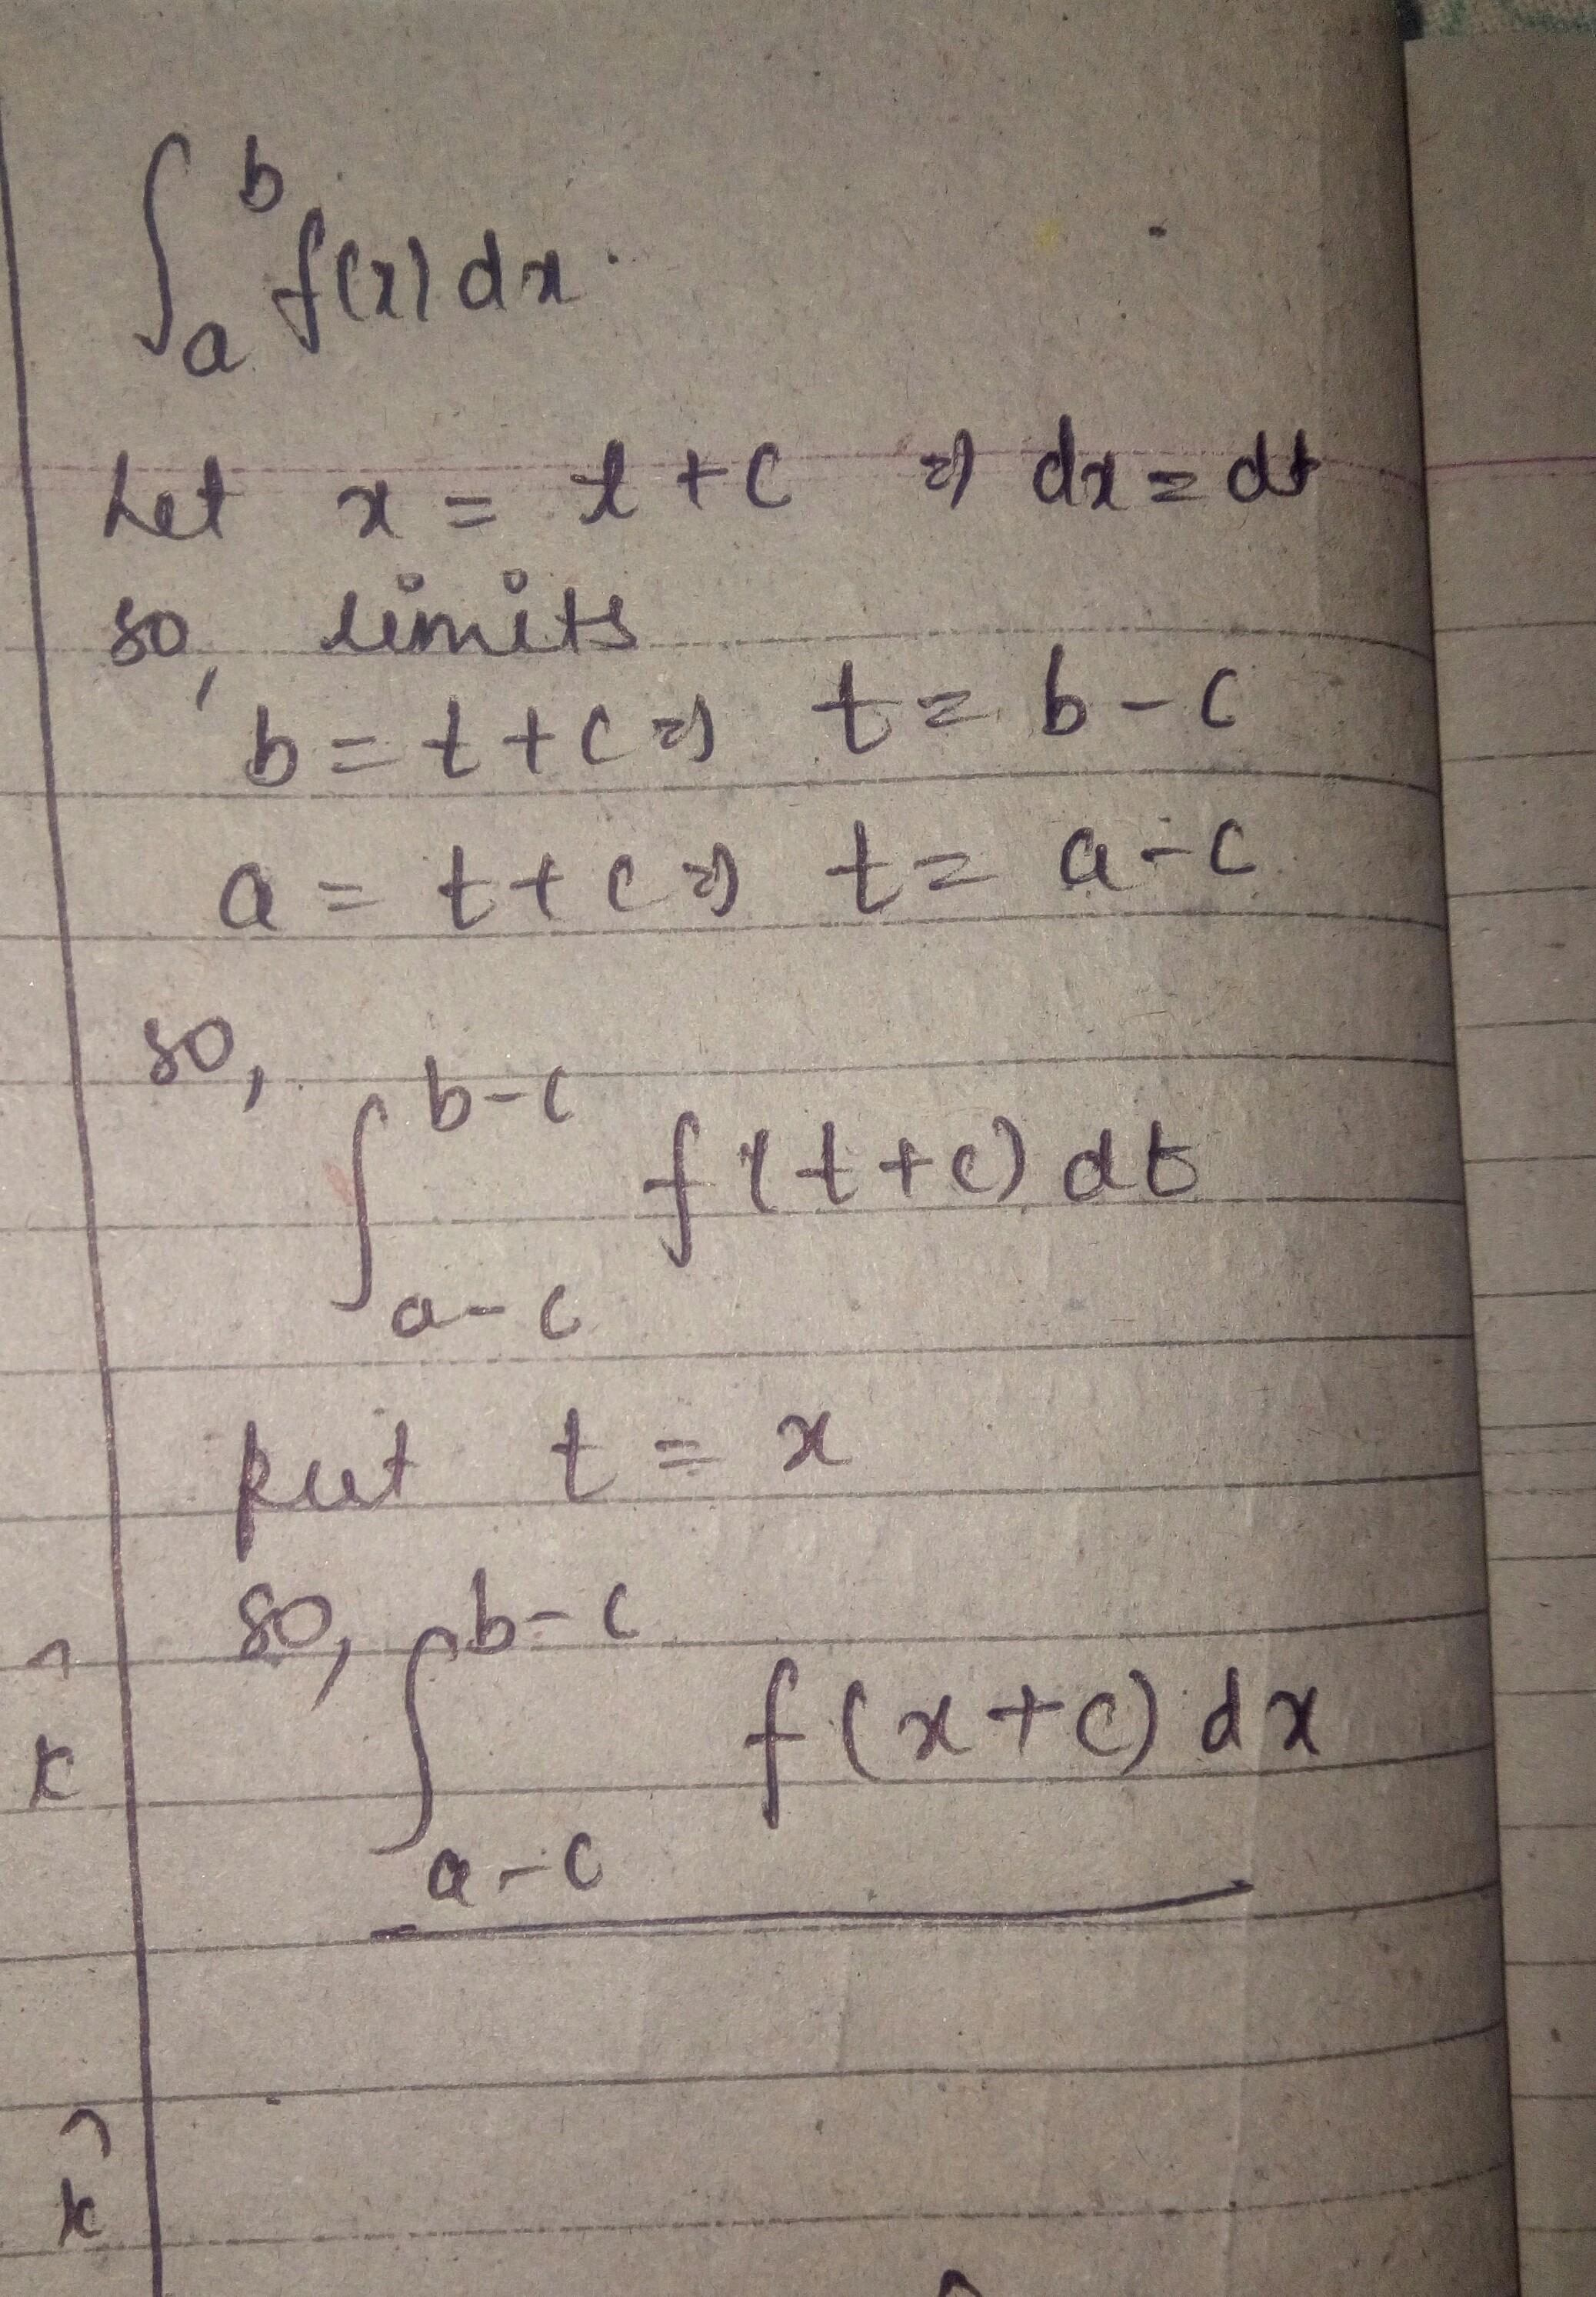 ∫_a^b f(x) dx.
Let x = t + c ⇒ dx = dt
so, limits
b = t + c ⇒ t = b - c
a = t + c ⇒ t = a - c
so,
∫_{a-c}^{b-c} f(t+c) dt
put t = x
so, ∫_{a-c}^{b-c} f(x+c) dx
k̂